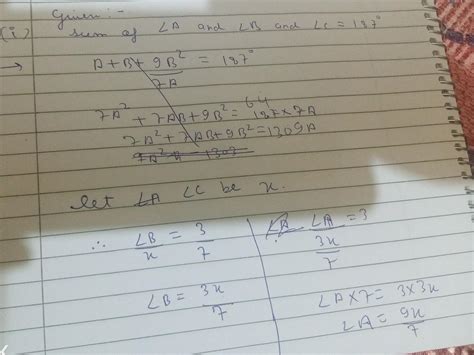 Given:-
(i) sum of ∠A and ∠B and ∠C = 187°
→ A + B + 9B²/7A = 187°
7A² + 7AB + 9B² = 187×7A
7A² + 7AB + 9B² = 1309A
let ∠C be x.
∴ ∠B/x = 3/7
∠B = 3x/7
∠A/(3x/7) = 3
∠A×7 = 3×3x
∠A = 9x/7